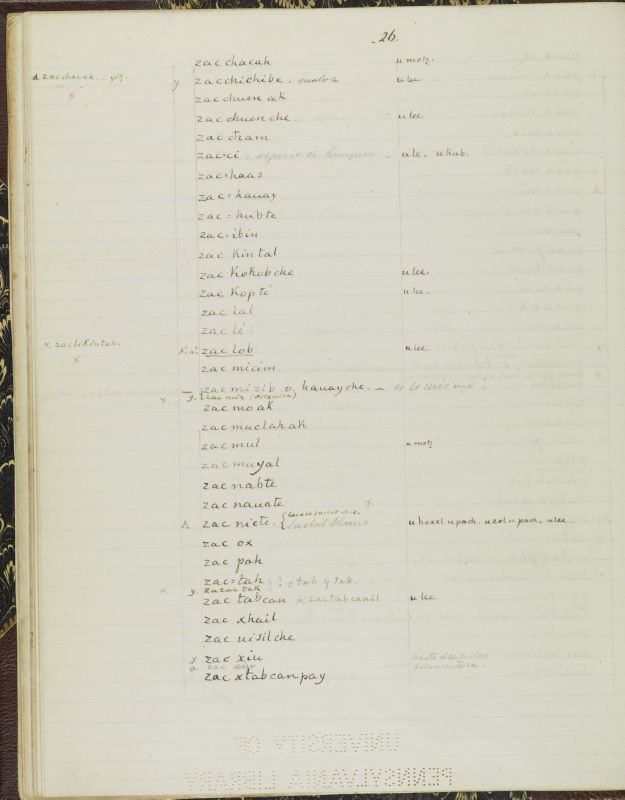 26.
zac chacah u motz.
d. zac chacah. yitz.
y zac chichibe : u lee
zac chuen ak
zac chuen che. u lee
zac cham
zac=ci : u le. u kab.
zac=haaz
zac=hauay
zac=hubte
zac=ibin
zac Kintal
zac Kokobche u lee.
zac Kopté u lee.
zac lal
zac lé.
v. zaclikintah.
zac lob u lee
zac micim
zac mizib o. hauayche. — es lo mismo.
y. zac miz
zac mo ak
zac muclahak
zac mul u motz
zac muyal
zac nabte
zac nauate
A zac nicte. u hoxel u pach. u zol u pach. u lee.
zac ox
zac pah
zac=tah o tah y tak.
y. zazac tah
zac tabcan zactabcanil u lee
zac xhail
zac uisilche
y zac xiu
a zac xiu
zac xtabcanpay
UNIVERSITY OF
PENNSYLVANIA LIBRARY